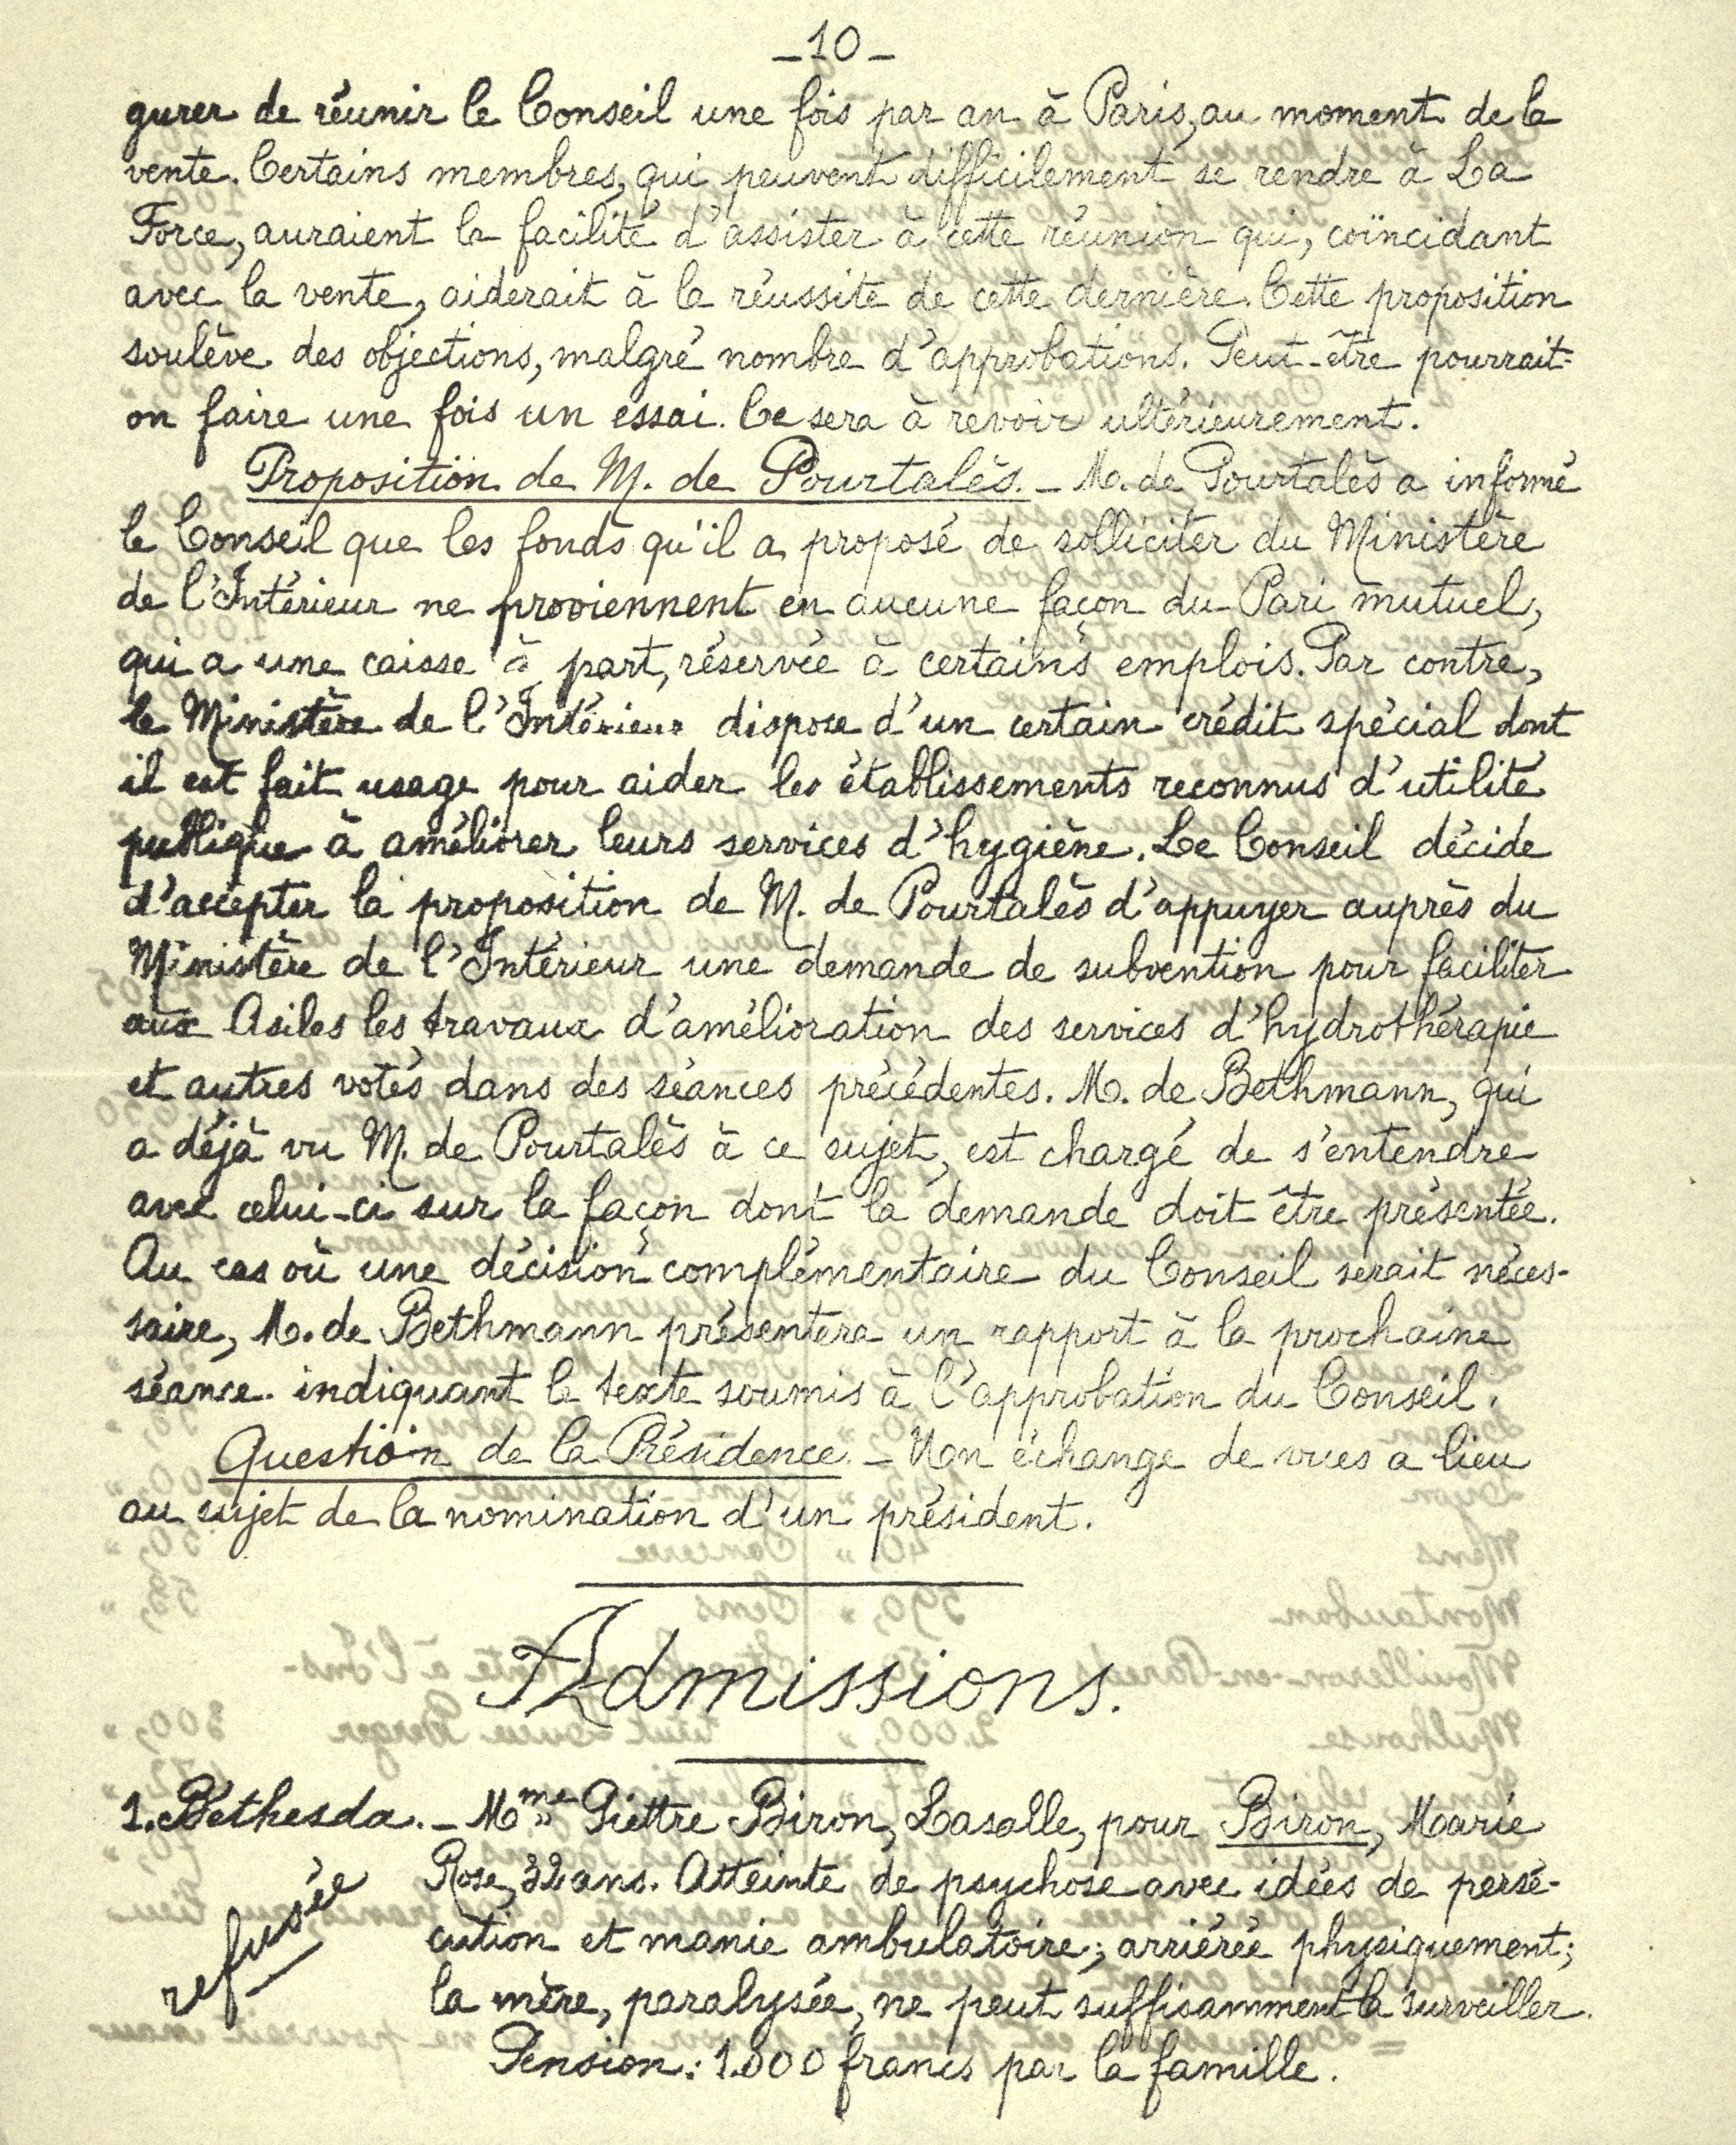 _10_
gurer de réunir le Conseil une fois par an à Paris, au moment de la
vente. Certains membres, qui peuvent difficilement se rendre à La
Force, auraient la facilité d'assister à cette réunion qui, coïncidant
avec la vente, aiderait à la réussite de cette dernière. Cette proposition
soulève des objections, malgré nombre d'approbations. Peut-être pourrait-
on faire une fois un essai. Ce sera à revoir ultérieurement.
Proposition de M. de Pourtalès. _ M. de Pourtalès a informé
le Conseil que les fonds qu'il a proposé de solliciter du Ministère
de l'Intérieur ne proviennent en aucune façon du Pari mutuel,
qui a une caisse à part, réservée à certains emplois. Par contre,
le Ministère de l'Intérieur dispose d'un certain crédit spécial dont
il est fait usage pour aider les établissements reconnus d'utilité
publique à améliorer leurs services d'hygiène. Le Conseil décide
d'accepter la proposition de M. de Pourtalès d'appuyer auprès du
Ministère de l'Intérieur une demande de subvention pour faciliter
aux Asiles les travaux d'amélioration des services d'hydrothérapie
et autres votés dans des séances précédentes. M. de Bethmann, qui
a déjà vu M. de Pourtalès à ce sujet, est chargé de s'entendre
avec celui-ci sur la façon dont la demande doit être présentée.
Au cas où une décision complémentaire du Conseil serait néces-
saire, M. de Bethmann présentera un rapport à la prochaine
séance. indiquant le texte soumis à l'approbation du Conseil.
Question de la Présidence. _ Un échange de vues a lieu
au sujet de la nomination d'un président.
Admissions.
1. Béthesda. _ Mme Piettre Biron, Lasalle, pour Biron, Marie
Rose, 32 ans. Atteinte de psychose avec idées de persé-
cution et manie ambulatoire; arriérée physiquement;
la mère, paralysée, ne peut suffisamment la surveiller.
Pension: 1.000 francs par la famille.
refusée